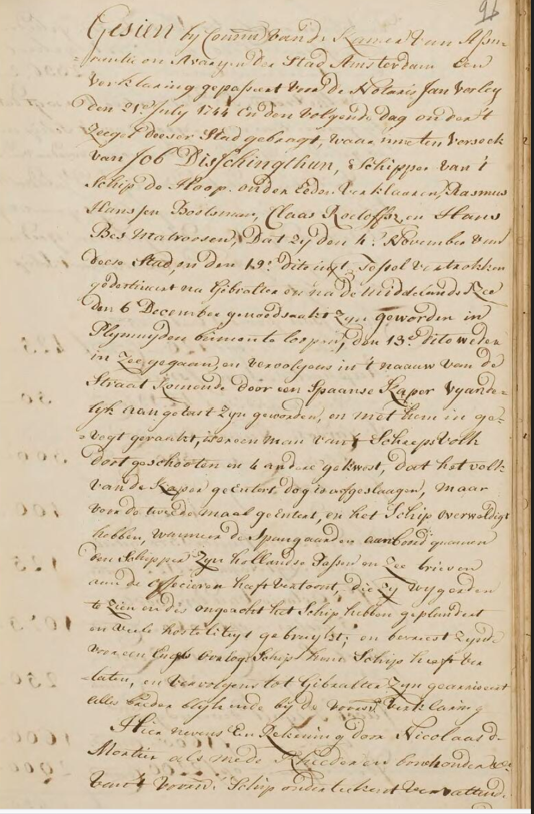 91
Gesien bij Comm. van de Kamer van Assu-
rantie en Avarij der Stad Amsterdam Een
Verklaring gepasseert voor de Notaris Jan Verleij
den 21e July 1744 en den volgende dag onder 't
Zeegel deeser Stad gebragt, waar inne ten versoek
van Job Disschingthun, Schipper van 't
Schip de Hoop. onder Eeden verklaaren, Rasmus
Hanssen Bootsman, Claas Roeloffs, en Hans
Bes Matroosen, Dat zij den 4e November van
deese Stad en den 19e dito uijt Tessel vertrokken
gedestineert na Gibralter en na de Middelandse Zee
den 6 December genoodsaakt zijn geworden in
Pleymuijden binnen te loopen, den 13e dito weder
in Zee gegaan, en vervolgens in 't naauw van de
Straat komende door een Spaanse Kaper vyande-
lijk aangetast zijn geworden, en met hem in ge-
vegt geraakt, is een man van 't Scheepsvolk
doot geschooten en 4 andere gekwest, dat het volk
van de Kaper geëntert, dog is afgeslaagen, maar
voor de tweede maal geëntert, en het Schip overweldigt
hebben, wanneer de Spangaarden aanboord quamen
den Schipper zijn hollandse Passen en Zee brieven
aan de officieren heeft vertoont, die zij wijgerden
te zien en des ongeacht het Schip hebben geplundert
en veele hostiliteijt gebruijkt; en bevreest zijnde
voor een Engls Oorlog Schip hunne Schip heeft ver-
laten, en vervolgens tot Gibralter zijn gearriveert
alles breder blijkende bij de voorn. Verklaring
Hier nevens Een Rekening door Nicolaas de
Mortier als mede Rheeder en boekhouder
van 't voorn. Schip onderteekent vervattende